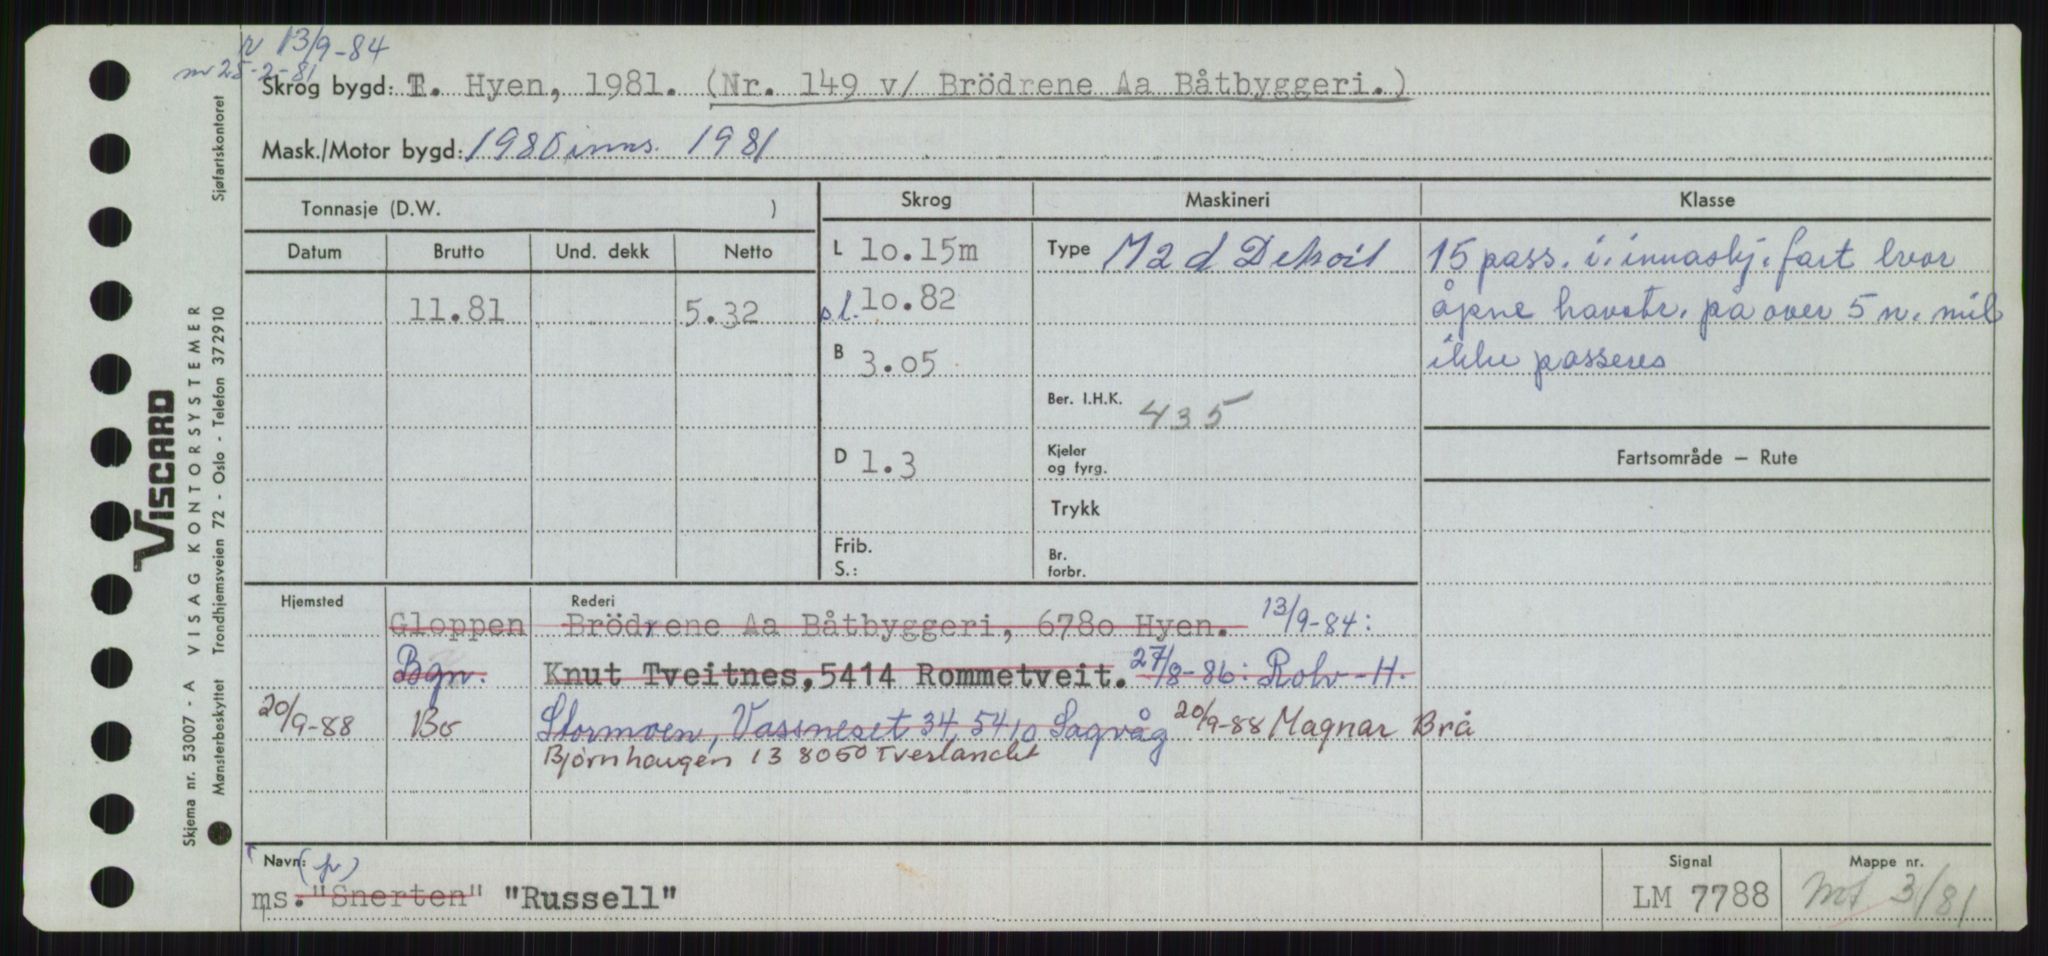 13/9-84
25-2-81
Skrog bygd: T. Hyen, 1981. (Nr. 149 v/ Brödrene Aa Båtbyggeri.)
Mask./Motor bygd: 1980 inns. 1981
Tonnasje (D.W. )
Skrog
Maskineri
Klasse
Datum
Brutto
Und. dekk
Netto
L 10.15m
Type M2 d Detroit
15 pass. i. innaskj. fart hvor
11.81
5.32
s.l. 10.82
åpne havstr. på over 5 n. mil
B 3.05
ikke passeres
Ber. I.H.K. 435
D 1.3
Kjeler
og fyrg.
Fartsområde — Rute
Trykk
Frib.
S.:
Br.
forbr.
Hjemsted
Rederi
Gloppen Brödrene Aa Båtbyggeri, 6780 Hyen. 13/9-84:
Bgn. Knut Tveitnes, 5414 Rommetveit. 27/8-86: Rolv-H.
20/9-88 Bo Stormoen, Vassneset 34, 5410 Sagvåg 20/9-88 Magnar Brå
Bjørnhaugen 13 8050 Tverlandet
Navn: (fr)
ms. "Snerten" "Russell"
Signal
LM 7788
Mappe nr.
Mt 3/81
Viscard
VISAG KONTORSYSTEMER
Skjema nr. 53007 - A
Trondhjemsveien 72 - Oslo - Telefon 372910
Mønsterbeskyttet
Sjøfartskontoret